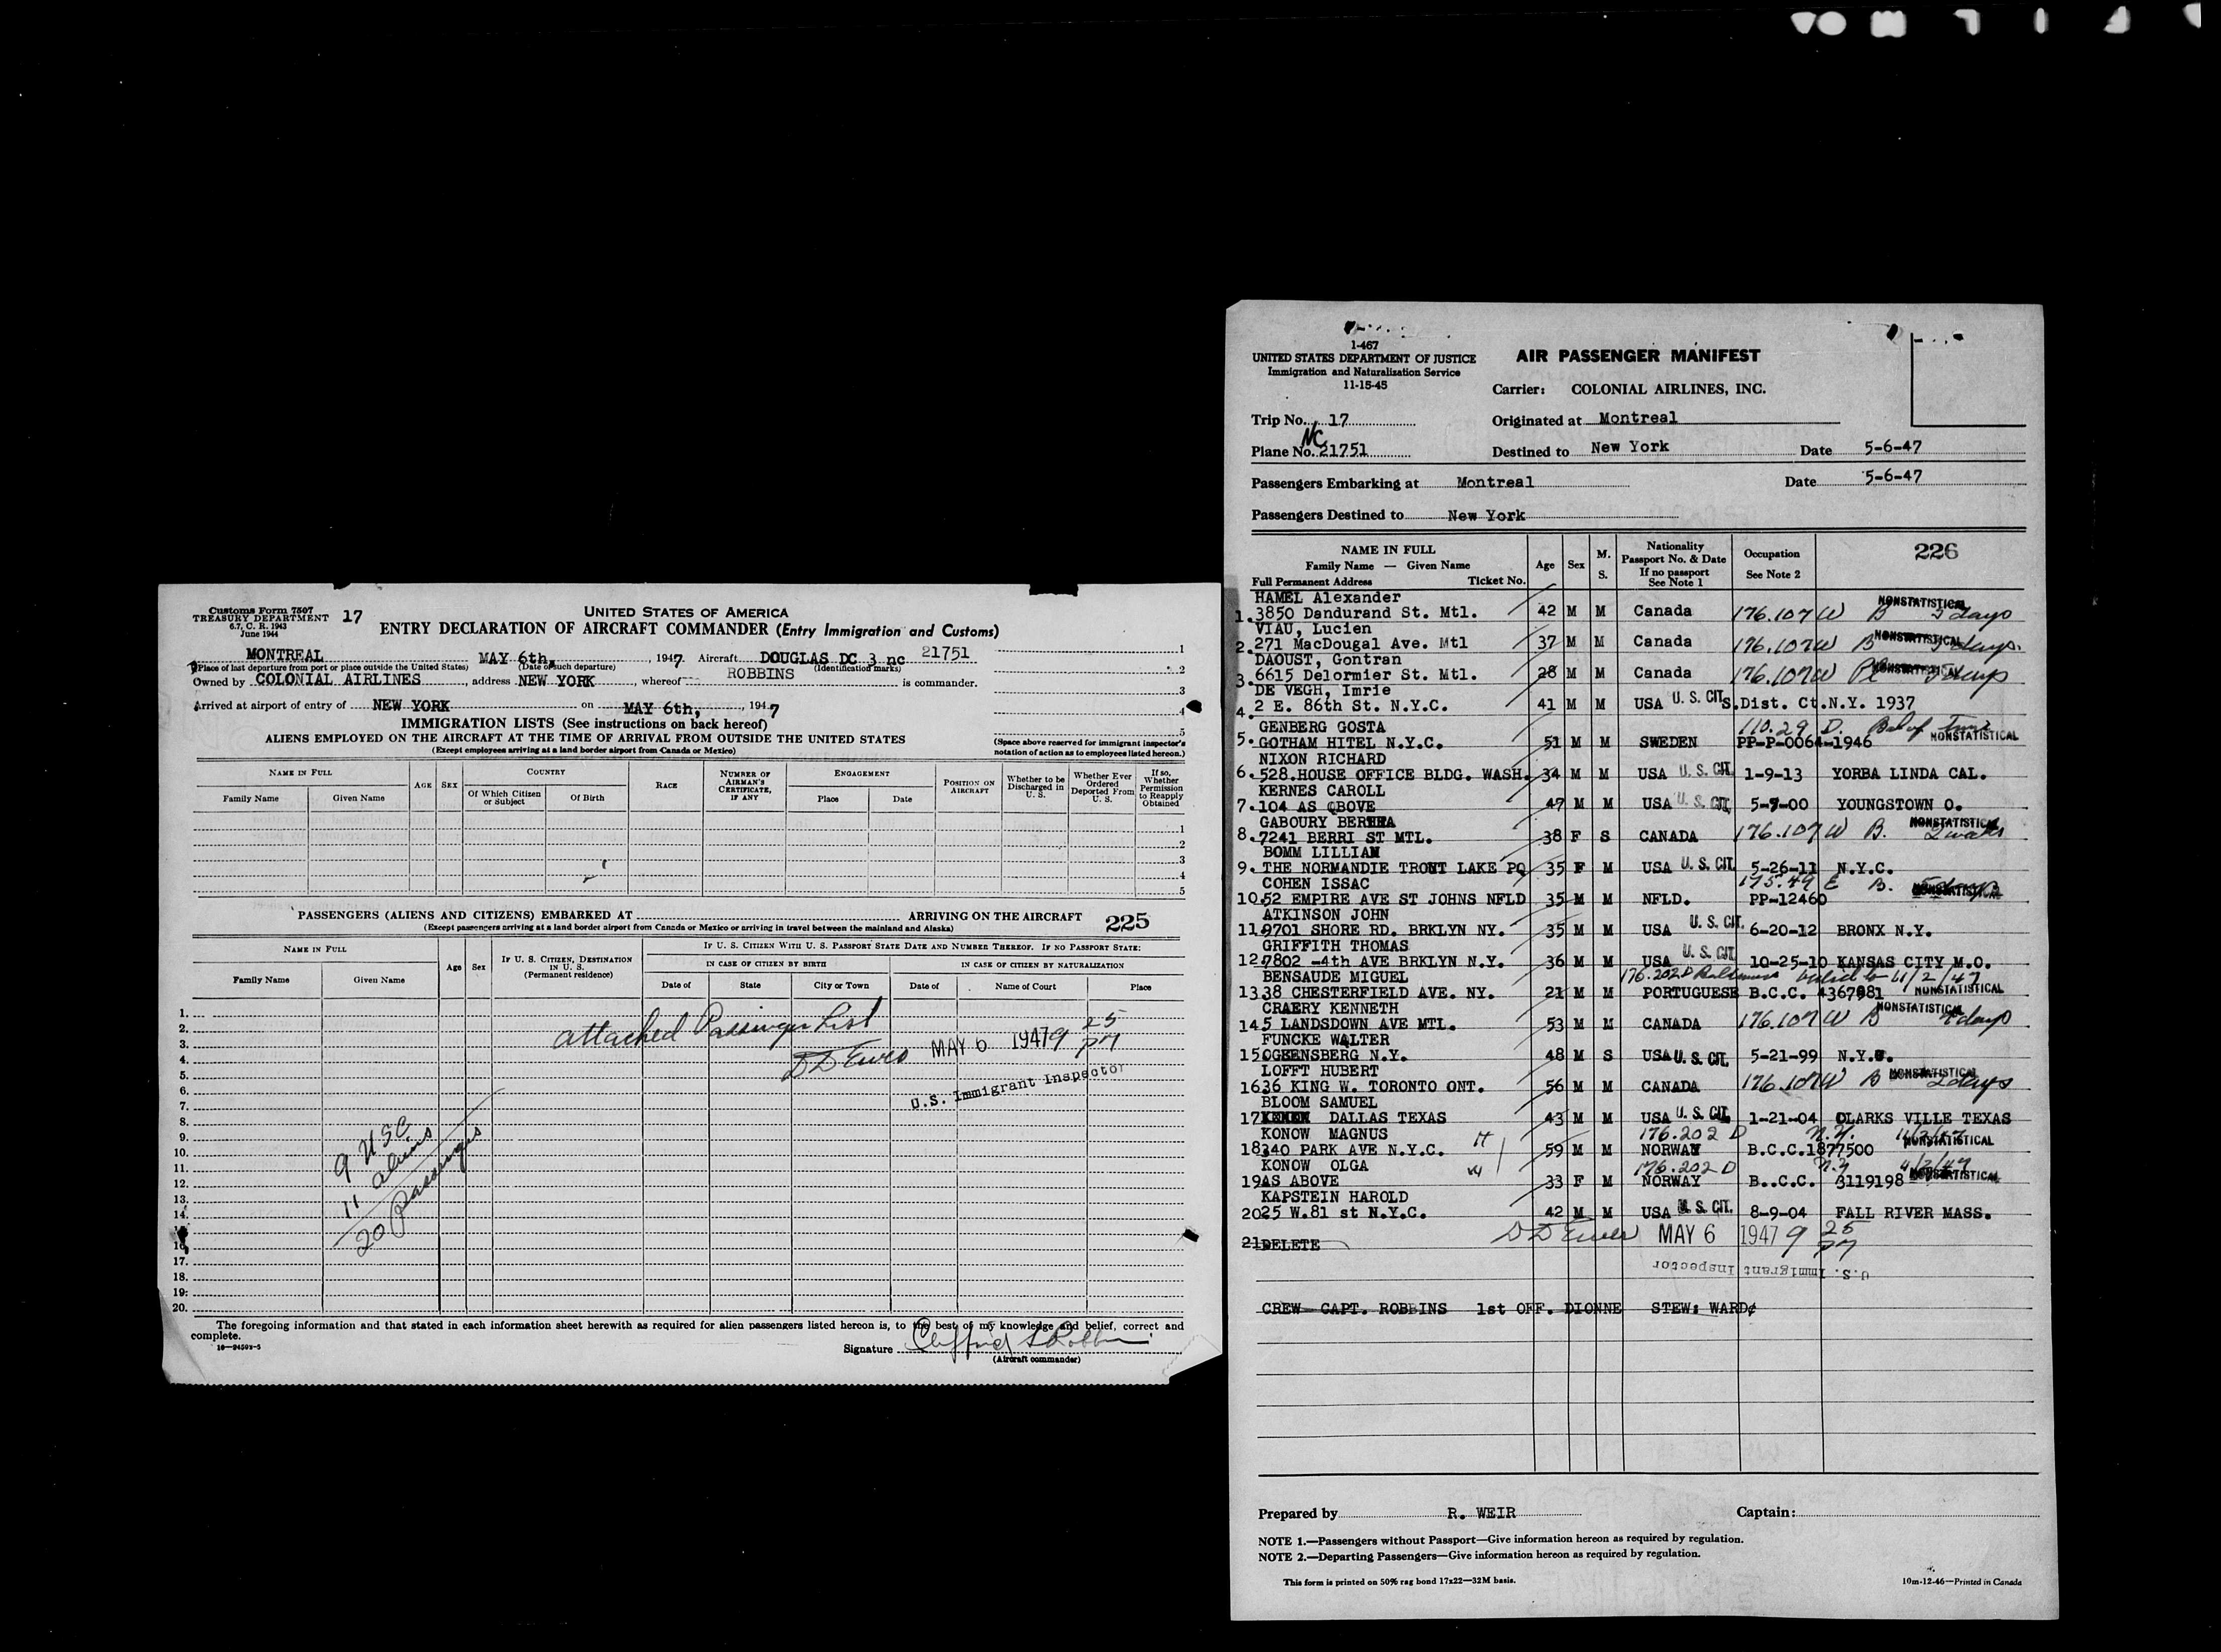 Customs Form 7507
TREASURY DEPARTMENT
6.7, C. R. 1943
June 1944
17
UNITED STATES OF AMERICA
ENTRY DECLARATION OF AIRCRAFT COMMANDER (Entry Immigration and Customs)
MONTREAL MAY 6th, , 1947 Aircraft DOUGLAS DC 3 nc 21751
(Place of last departure from port or place outside the United States) (Date of such departure) (Identification marks)
Owned by COLONIAL AIRLINES , address NEW YORK , whereof ROBBINS is commander.
Arrived at airport of entry of NEW YORK on MAY 6th, , 1947
1
2
3
4
5
IMMIGRATION LISTS (See instructions on back hereof)
ALIENS EMPLOYED ON THE AIRCRAFT AT THE TIME OF ARRIVAL FROM OUTSIDE THE UNITED STATES
(Except employees arriving at a land border airport from Canada or Mexico)
(Space above reserved for immigrant inspector's
notation of action as to employees listed hereon.)
NAME IN FULL
Family Name Given Name
AGE SEX
COUNTRY
Of Which Citizen or Subject Of Birth
RACE
NUMBER OF AIRMAN'S CERTIFICATE, IF ANY
ENGAGEMENT
Place Date
POSITION ON AIRCRAFT
Whether to be Discharged in U. S.
Whether Ever Ordered Deported From U. S.
If so, Whether Permission to Reapply Obtained
1
2
3
4
5
PASSENGERS (ALIENS AND CITIZENS) EMBARKED AT ARRIVING ON THE AIRCRAFT 225
(Except passengers arriving at a land border airport from Canada or Mexico or arriving in travel between the mainland and Alaska)
NAME IN FULL
Family Name Given Name
Age Sex
IF U. S. CITIZEN, DESTINATION IN U. S. (Permanent residence)
IF U. S. CITIZEN WITH U. S. PASSPORT STATE DATE AND NUMBER THEREOF. IF NO PASSPORT STATE:
IN CASE OF CITIZEN BY BIRTH IN CASE OF CITIZEN BY NATURALIZATION
Date of State City or Town Date of Name of Court Place
1.
2.
3.
4.
5.
6.
7.
8.
9.
10.
11.
12.
13.
14.
16.
17.
18.
19.
20.
attached Passenger List
MAY 6 1947 9 25 PM
U.S. Immigrant Inspector
9 USC
11 aliens
20 passengers
The foregoing information and that stated in each information sheet herewith as required for alien passengers listed hereon is, to the best of my knowledge and belief, correct and
complete.
16—9450x-5
Signature
(Aircraft commander)
1-467
UNITED STATES DEPARTMENT OF JUSTICE
Immigration and Naturalization Service
11-15-45
AIR PASSENGER MANIFEST
Carrier: COLONIAL AIRLINES, INC.
Trip No. 17 Originated at Montreal
NC
Plane No. 21751 Destined to New York Date 5-6-47
Passengers Embarking at Montreal Date 5-6-47
Passengers Destined to New York
NAME IN FULL
Family Name — Given Name
Full Permanent Address Ticket No.
Age Sex M. S.
Nationality
Passport No. & Date
If no passport
See Note 1
Occupation
See Note 2
226
HAMEL Alexander NONSTATISTICAL
1. 3850 Dandurand St. Mtl. 42 M M Canada 176.107W B 2 days
VIAU, Lucien NONSTATISTICAL
2. 271 MacDougal Ave. Mtl 37 M M Canada 176.107W B days.
DAOUST, Gontran NONSTATISTICAL
3. 6615 Delormier St. Mtl. 28 M M Canada 176.107W Pl days
DE VEGH, Imrie
4. 2 E. 86th St. N.Y.C. 41 M M USA U. S. CIT. S.Dist. Ct.N.Y. 1937
GENBERG GOSTA 110.29 D.
5. GOTHAM HITEL N.Y.C. 51 M M SWEDEN PP-P-0064-1946 NONSTATISTICAL
NIXON RICHARD
6. 528.HOUSE OFFICE BLDG. WASH. 34 M M USA U. S. CIT. 1-9-13 YORBA LINDA CAL.
KERNES CAROLL
7. 104 AS QBOVE 47 M M USA U. S. CIT. 5-7-00 YOUNGSTOWN O.
GABOURY BERTHA NONSTATISTICAL
8. 7241 BERRI ST MTL. 38 F S CANADA 176.107W B. 2
BOMM LILLIAN
9. THE NORMANDIE TROUT LAKE PQ 35 F M USA U. S. CIT. 5-26-11 N.Y.C.
COHEN ISSAC 175.49 E B. NONSTATISTICAL
10. 52 EMPIRE AVE ST JOHNS NFLD 35 M M NFLD. PP-12460
ATKINSON JOHN
11. 9701 SHORE RD. BRKLYN NY. 35 M M USA U. S. CIT. 6-20-12 BRONX N.Y.
GRIFFITH THOMAS
12. 7802 -4th AVE BRKLYN N.Y. 36 M M USA U. S. CIT. 10-25-10 KANSAS CITY M.O.
BENSAUDE MIGUEL 176.202D Baltimore valid to 11/2/47
13. 38 CHESTERFIELD AVE. NY. 21 M M PORTUGUESE B.C.C. 4367981 NONSTATISTICAL
CRAERY KENNETH NONSTATISTICAL
14. 5 LANDSDOWN AVE MTL. 53 M M CANADA 176.107W B days
FUNCKE WALTER
15. OGEENSBERG N.Y. 48 M S USA U. S. CIT. 5-21-99 N.Y.C.
LOFFT HUBERT NONSTATISTICAL
16. 36 KING W. TORONTO ONT. 56 M M CANADA 176.107W B 2 days
BLOOM SAMUEL
17. DALLAS TEXAS 43 M M USA U. S. CIT. 1-21-04 CLARKS VILLE TEXAS
KONOW MAGNUS H 176.202 D N.Y.
18. 340 PARK AVE N.Y.C. 59 M M NORWAY B.C.C.1877500 NONSTATISTICAL
KONOW OLGA W 176.202 D N.Y
19. AS ABOVE 33 F M NORWAY B..C.C. 3119198 NONSTATISTICAL
KAPSTEIN HAROLD
20. 25 W.81 st N.Y.C. 42 M M USA U. S. CIT. 8-9-04 FALL RIVER MASS.
MAY 6 1947 9 25 PM
21 DELETE
U.S. Immigrant Inspector
CREW CAPT. ROBBINS 1st OFF. DIONNE STEW: WARD¢
Prepared by R. WEIR Captain:
NOTE 1.—Passengers without Passport—Give information hereon as required by regulation.
NOTE 2.—Departing Passengers—Give information hereon as required by regulation.
This form is printed on 50% rag bond 17x22—32M basis.
10m-12-46—Printed in Canada